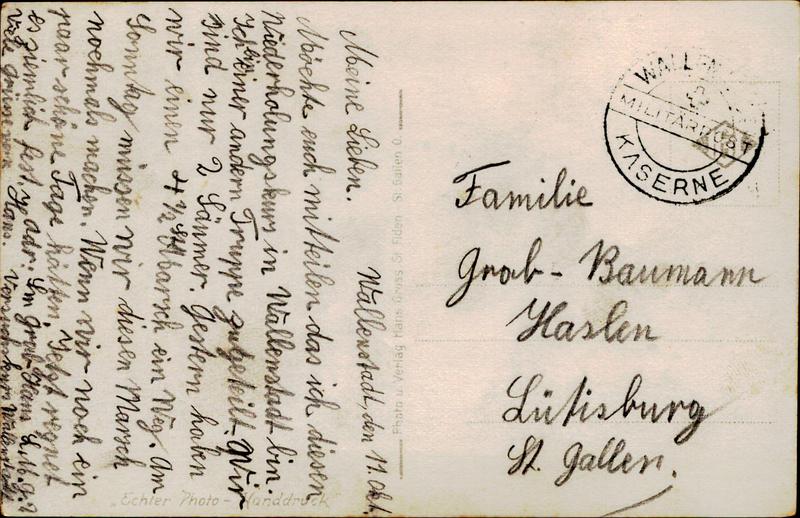 Wallenstadt, den 11. Okt.
Meine Lieben.
Möchte euch mitteilen das ich diesen
Wiederholungskurs in Wallenstadt bin.
Ich bin einer andern Truppe zugeteilt. Wir
sind nur 2 Säumer. Gestern haben
wir einen 4½ Std. Marsch ein Weg. Am
Sonntag müssen wir diesen Marsch
nochmals machen. Wenn wir noch ein
paar schöne Tage hätten. Jetzt regnet
es ziemlich fest. Adr. Sm. Grob Hans
Viele Grüsse von Hans. Versuchskurs Wallenstadt
Photo u. Verlag Hans Gross St. Fiden St. Gallen O.
„Echter Photo-Handdruck"
WALLEN
MILITÄRPOST
KASERNE
Familie
Grob-Baumann
Haslen
Lütisburg
St. Gallen.